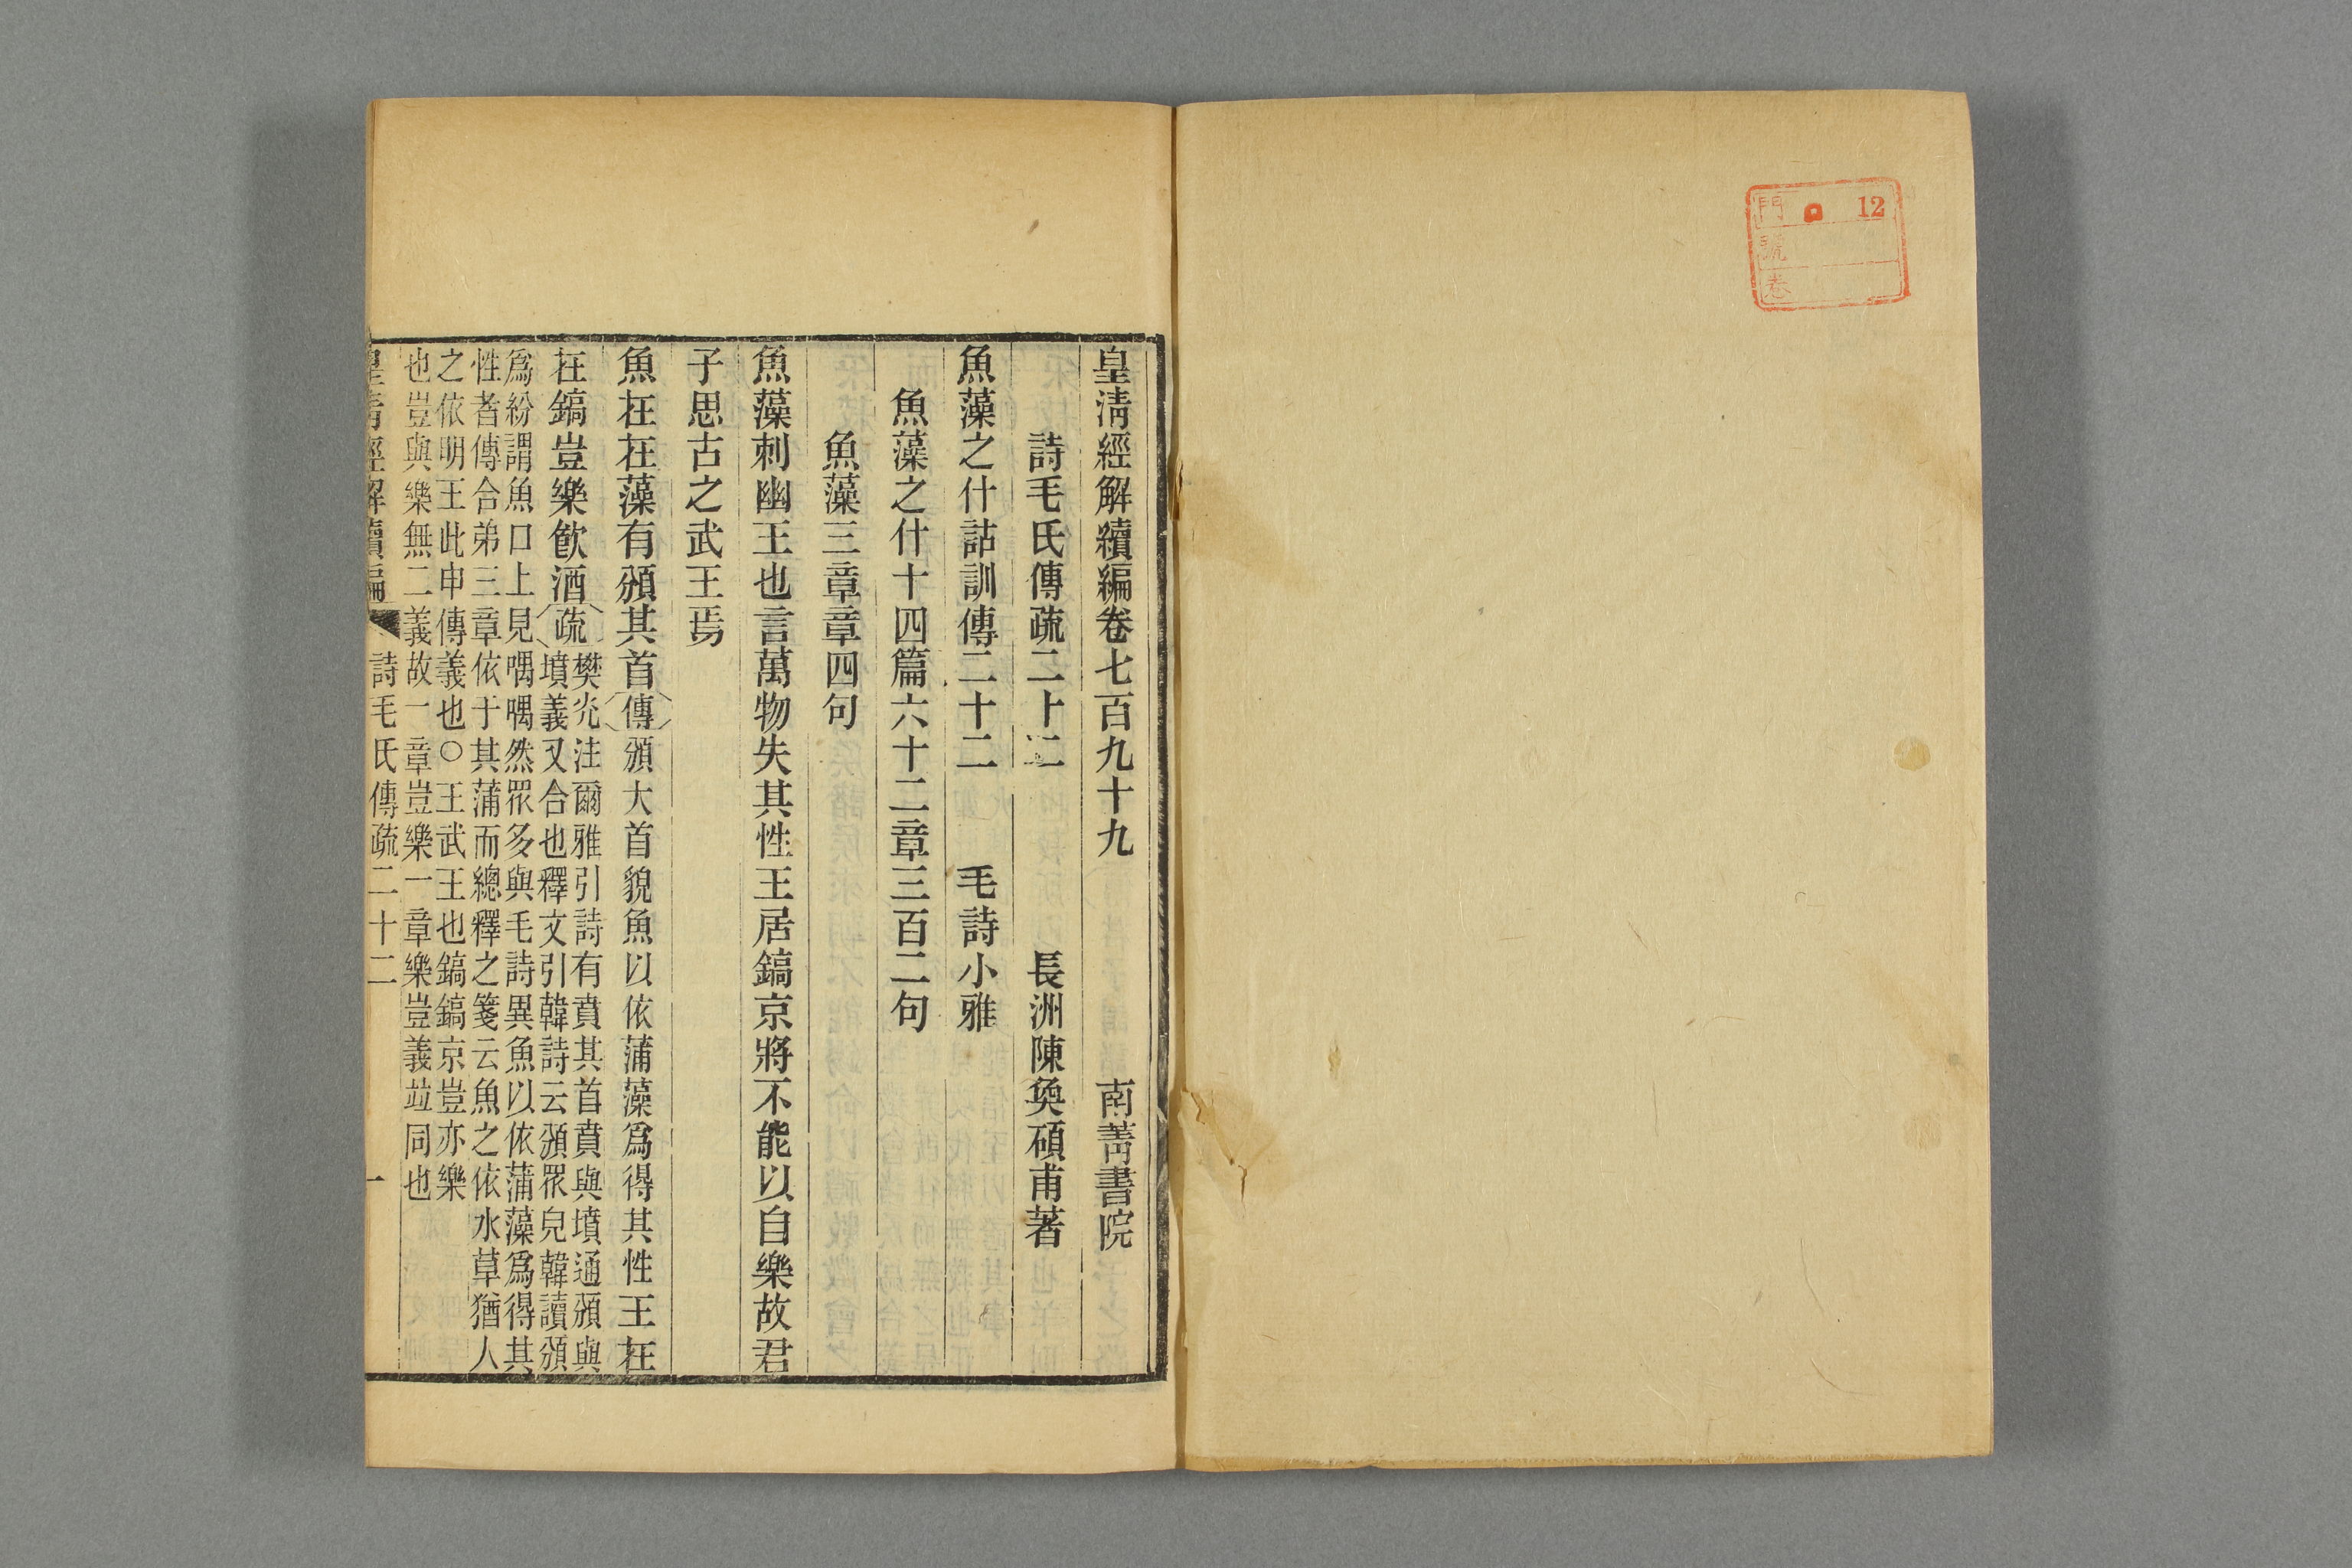 門 12
號
卷
皇淸經解續編卷七百九十九 南菁書院
詩毛氏傳疏二十二 長洲陳奐碩甫著
魚藻之什詁訓傳二十二 毛詩小雅
魚藻之什十四篇六十二章三百二句
魚藻三章章四句
魚藻刺幽王也言萬物失其性王居鎬京將不能以自樂故君
子思古之武王焉
魚在在藻有頒其首傳頒大首貌魚以依蒲藻爲得其性王在
在鎬豈樂飮酒疏
樊光注爾雅引詩有賁其首賁與墳通頒與
墳義又合也釋文引韓詩云頒眾皃韓讀頒
爲紛謂魚口上見喁喁然眾多與毛詩異魚以依蒲藻爲得其
性者傳合弟三章依于其蒲而總釋之箋云魚之依水草猶人
之依明王此申傳義也○王武王也鎬鎬京豈亦樂
也豈與樂無二義故一章豈樂一章樂豈義竝同也
皇淸經解續編 詩毛氏傳疏二十二 一